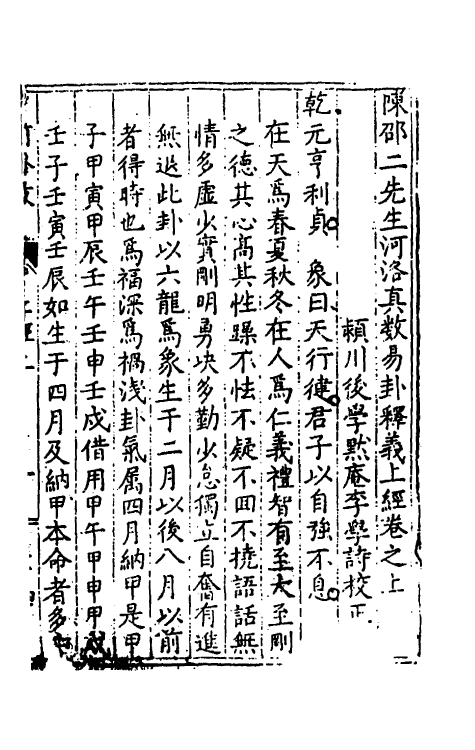 陳邵二先生河洛真數易卦釋義上經卷之上
頼川後學㸃庵李學詩校正
乾元亨利貞　象曰天行健君子以自強不息
在天爲春夏秋冬在人爲仁義禮智有至大至剛
之德其心髙其性躁不怯不疑不回不撓語話無
情多虛少實剛明勇决多勤少怠獨立自奮有進
無退此卦以六龍爲象生于二月以後八月以前
者得時也爲福深爲禍淺卦氣属四月納甲是甲
子甲寅甲辰壬午壬申壬戍借用甲午甲申甲戍
壬子壬寅壬辰如生于四月及納甲本命者多